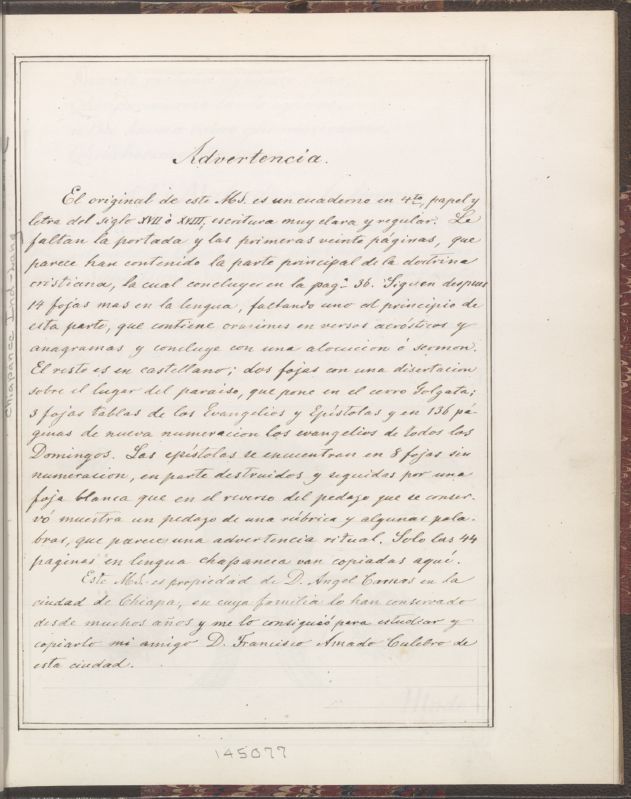 Advertencia.
El original de este MS. es un cuaderno en 4to, papel y
letra del siglo XVII ò XVIII, escritura muy clara y regular. Le
faltan la portada y las primeras veinte páginas, que
parece han contenido la parte principal de la doctrina
cristiana, la cual concluye en la pag. 36. Siguen despues
14 fojas mas en la lengua, faltando uno al principio de
esta parte, que contiene oraciones en versos acrósticos y
anagramas y concluye con una alocucion ó sermon.
El resto es en castellano; dos fojas con una disertacion
sobre el lugar del paraiso, que pone en el cerro Golgata;
3 fojas tablas de los Evangelios y Epístolas y en 136 pá-
ginas de nueva numeracion los evangelios de todos los
Domingos. Las epístolas se encuentran en 8 fojas sin
numeracion, en parte destruidos y seguidas por una
foja blanca que en el reverso del pedazo que se conser-
vó muestra un pedazo de una rúbrica y algunas pala-
bras, que parece una advertencia ritual. Solo las 44
paginas en lengua chapaneca van copiadas aquí.
Este MS. es propiedad de D. Angel in la
ciudad de Chiapa, en cuya familia lo han conservado
desde muchos años y me lo consiguió para estudiar y
copiarlo mi amigo D. Francisco Amado Culebro de
esta ciudad.
145077
Chiapanec Ind. Lang